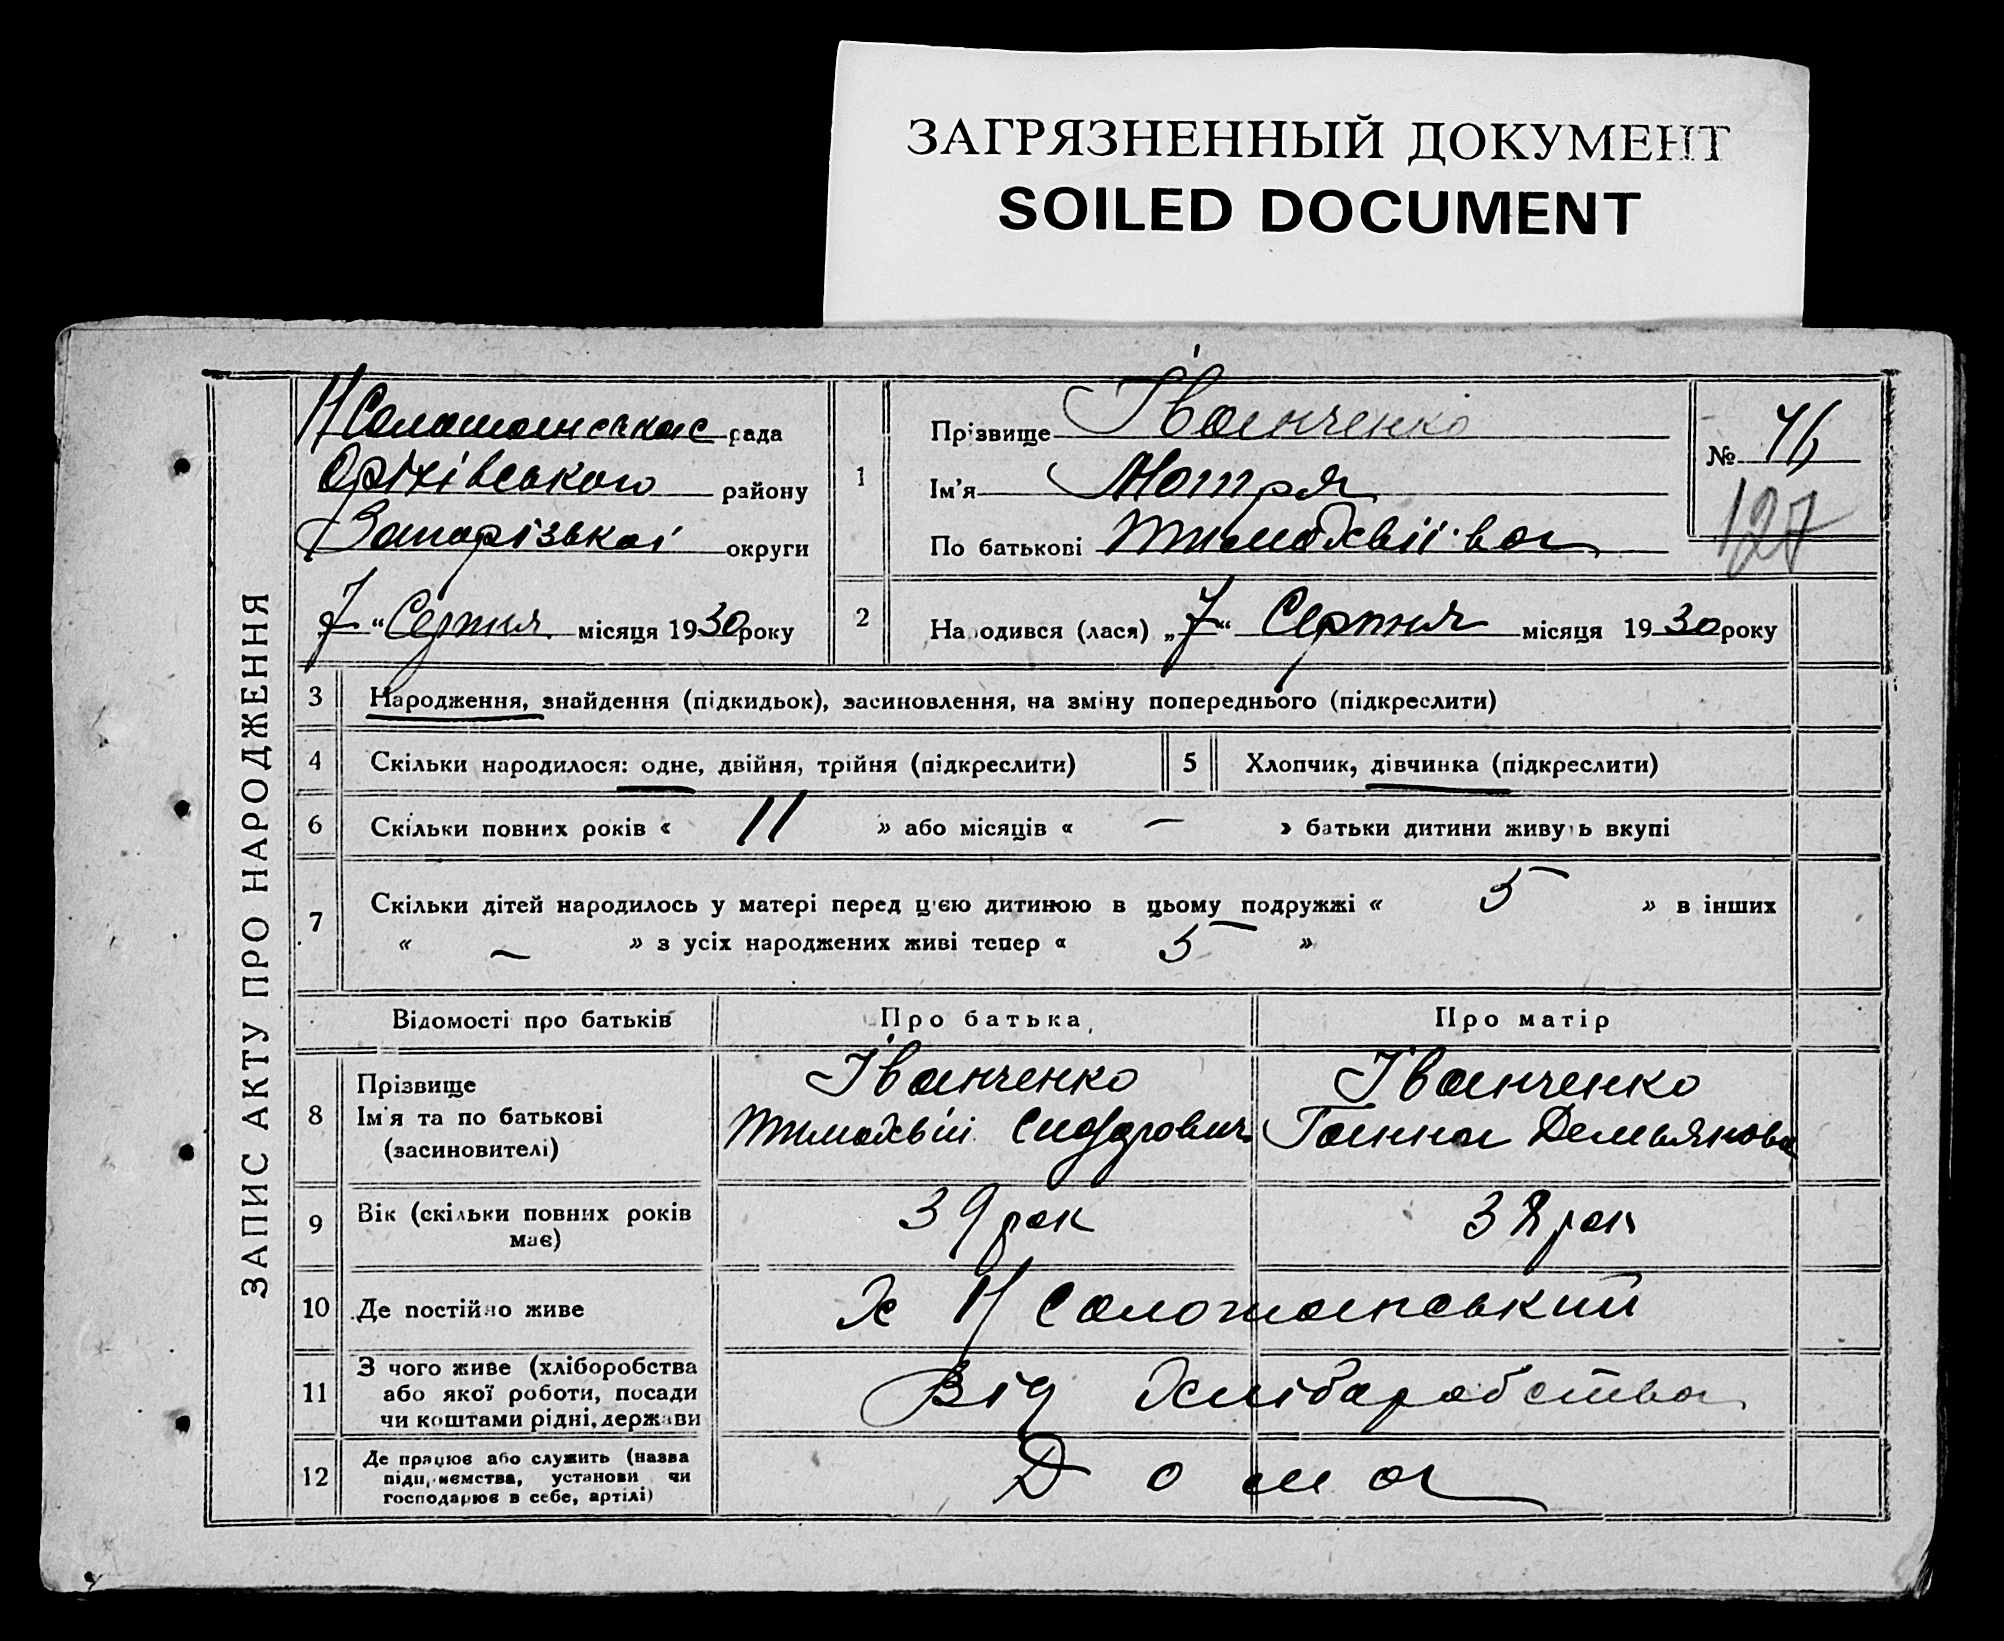 ЗАГРЯЗНЕННЫЙ ДОКУМЕНТ
SOILED DOCUMENT
ЗАПИС АКТУ ПРО НАРОДЖЕННЯ
рада
Оріхівського району
Запорізької округи
7 “ Серпня місяця 1930 року
1
Прізвище Іванченко
Ім'я Мотря
По батькові Тимохвіївна
№
127
2
Народився (лася) „ 7 “ Серпня місяця 1930 року
3 Народження, знайдення (підкидьок), засиновлення, на зміну попереднього (підкреслити)
4 Скільки народилося: одне, двійня, трійня (підкреслити)
5 Хлопчик, дівчинка (підкреслити)
6 Скільки повних років « 11 » або місяців « — » батьки дитини живуть вкупі
7 Скільки дітей народилось у матері перед цією дитиною в цьому подружжі « 5 » в інших
« — » з усіх народжених живі тепер « 5 »
Відомості про батьків Про батька Про матір
8 Прізвище Іванченко Іванченко
Ім'я та по батькові Тимохвій Сидорович Ганна Демьянова
(засиновителі)
9 Вік (скільки повних років має) 39 рок 38 рок
10 Де постійно живе Х Н Солошанський
11 З чого живе (хліборобства
або якої роботи, посади
чи коштами рідні, держави Від хліборобства
12 Де працює або служить (назва
підприємства, установи чи
господарює в себе, артілі) Дома